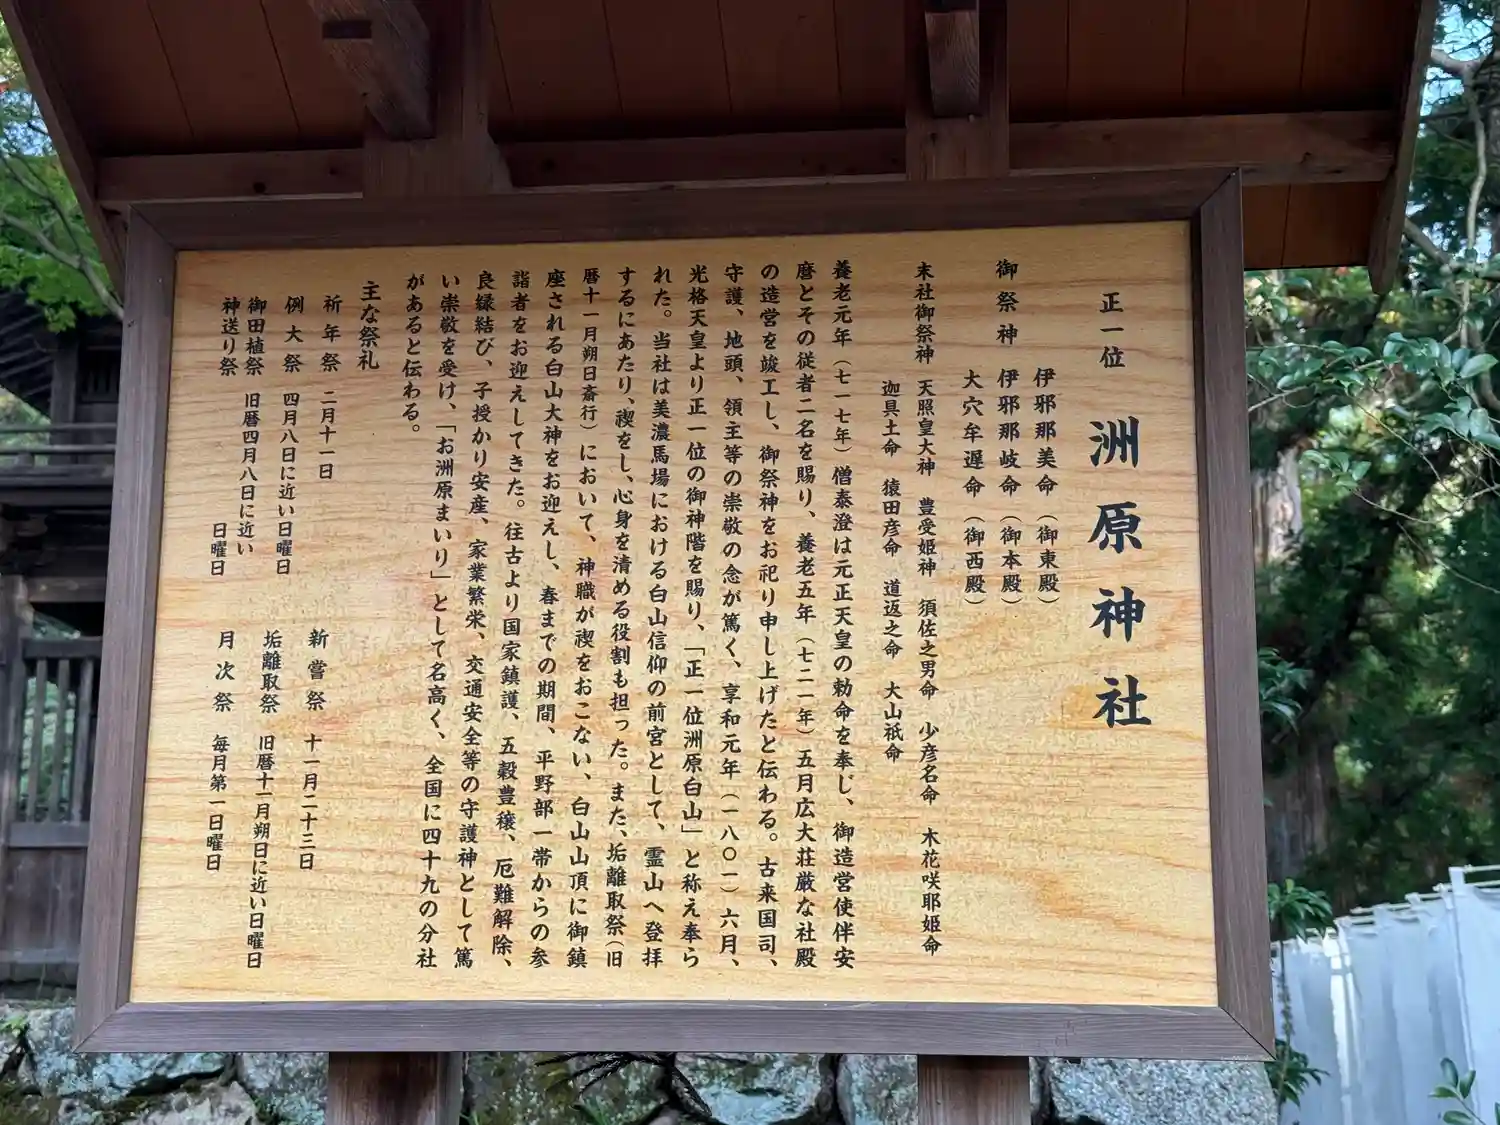 正一位 洲原神社
御祭神
伊邪那美命(御東殿)
伊邪那岐命(御本殿)
大穴牟遅命(御西殿)
末社御祭神 天照皇大神 豊受姫神 須佐之男命 少彦名命 木花咲耶姫命
迦具土命 猿田彦命 道返之命 大山祇命
養老元年(七一七年)僧泰澄は元正天皇の勅命を奉じ、御造営使伴安
麿とその従者二名を賜り、養老五年(七二一年)五月広大荘厳な社殿
の造営を竣工し、御祭神をお祀り申し上げたと伝わる。古来国司、
守護、地頭、領主等の崇敬の念が篤く、享和元年(一八〇一)六月、
光格天皇より正一位の御神階を賜り、「正一位洲原白山」と称え奉ら
れた。当社は美濃馬場における白山信仰の前宮として、霊山へ登拝
するにあたり、禊をし、心身を清める役割も担った。また、垢離取祭(旧
暦十一月朔日斎行)において、神職が禊をおこない、白山山頂に御鎮
座される白山大神をお迎えし、春までの期間、平野部一帯からの参
詣者をお迎えしてきた。往古より国家鎮護、五穀豊穣、厄難解除、
良縁結び、子授かり安産、家業繁栄、交通安全等の守護神として篤
い崇敬を受け、「お洲原まいり」として名高く、全国に四十九の分社
があると伝わる。
主な祭礼
祈年祭 二月十一日
例大祭 四月八日に近い日曜日
御田植祭
神送り祭
旧暦四月八日に近い
日曜日
新嘗祭 十一月二十三日
垢離取祭 旧暦十一月朔日に近い日曜日
月次祭 毎月第一日曜日